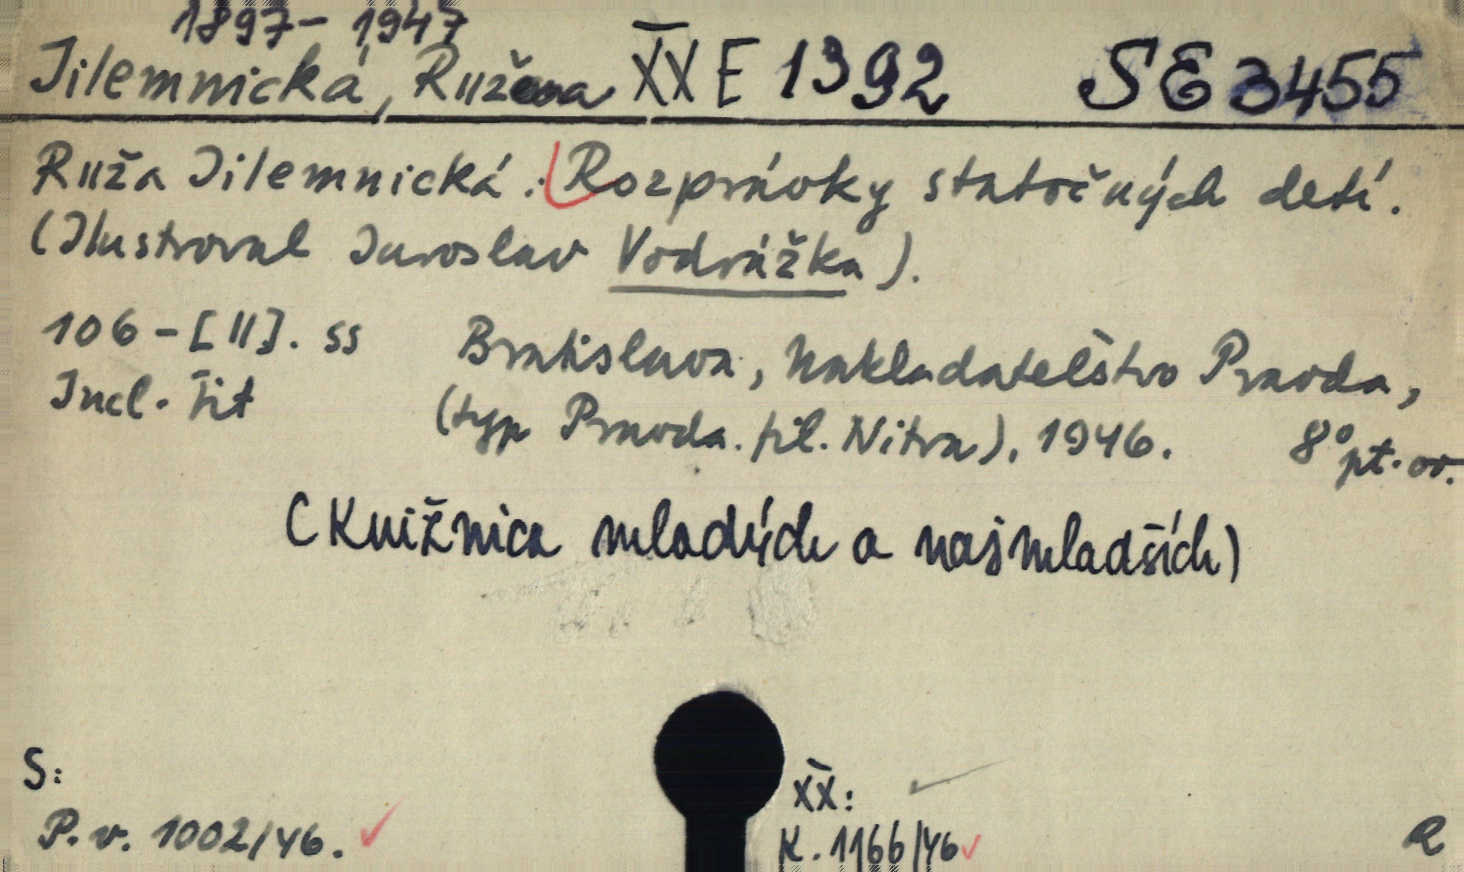 1897-1947
Jilemnická, Ružena X̅X E 1392 SE 3455
Ruža Jilemnická: Rozprávky statočných detí.
(Ilustroval Jaroslav Vodrážka).
106-[II]. ss Bratislava, Nakladateľstvo Pravda,
Incl. tit (typ Pravda. fil. Nitra), 1946. 8° pt. or.
(Knižnica mladých a najmladších)
S: XX:
P. v. 1002/46. K. 1166/46
R